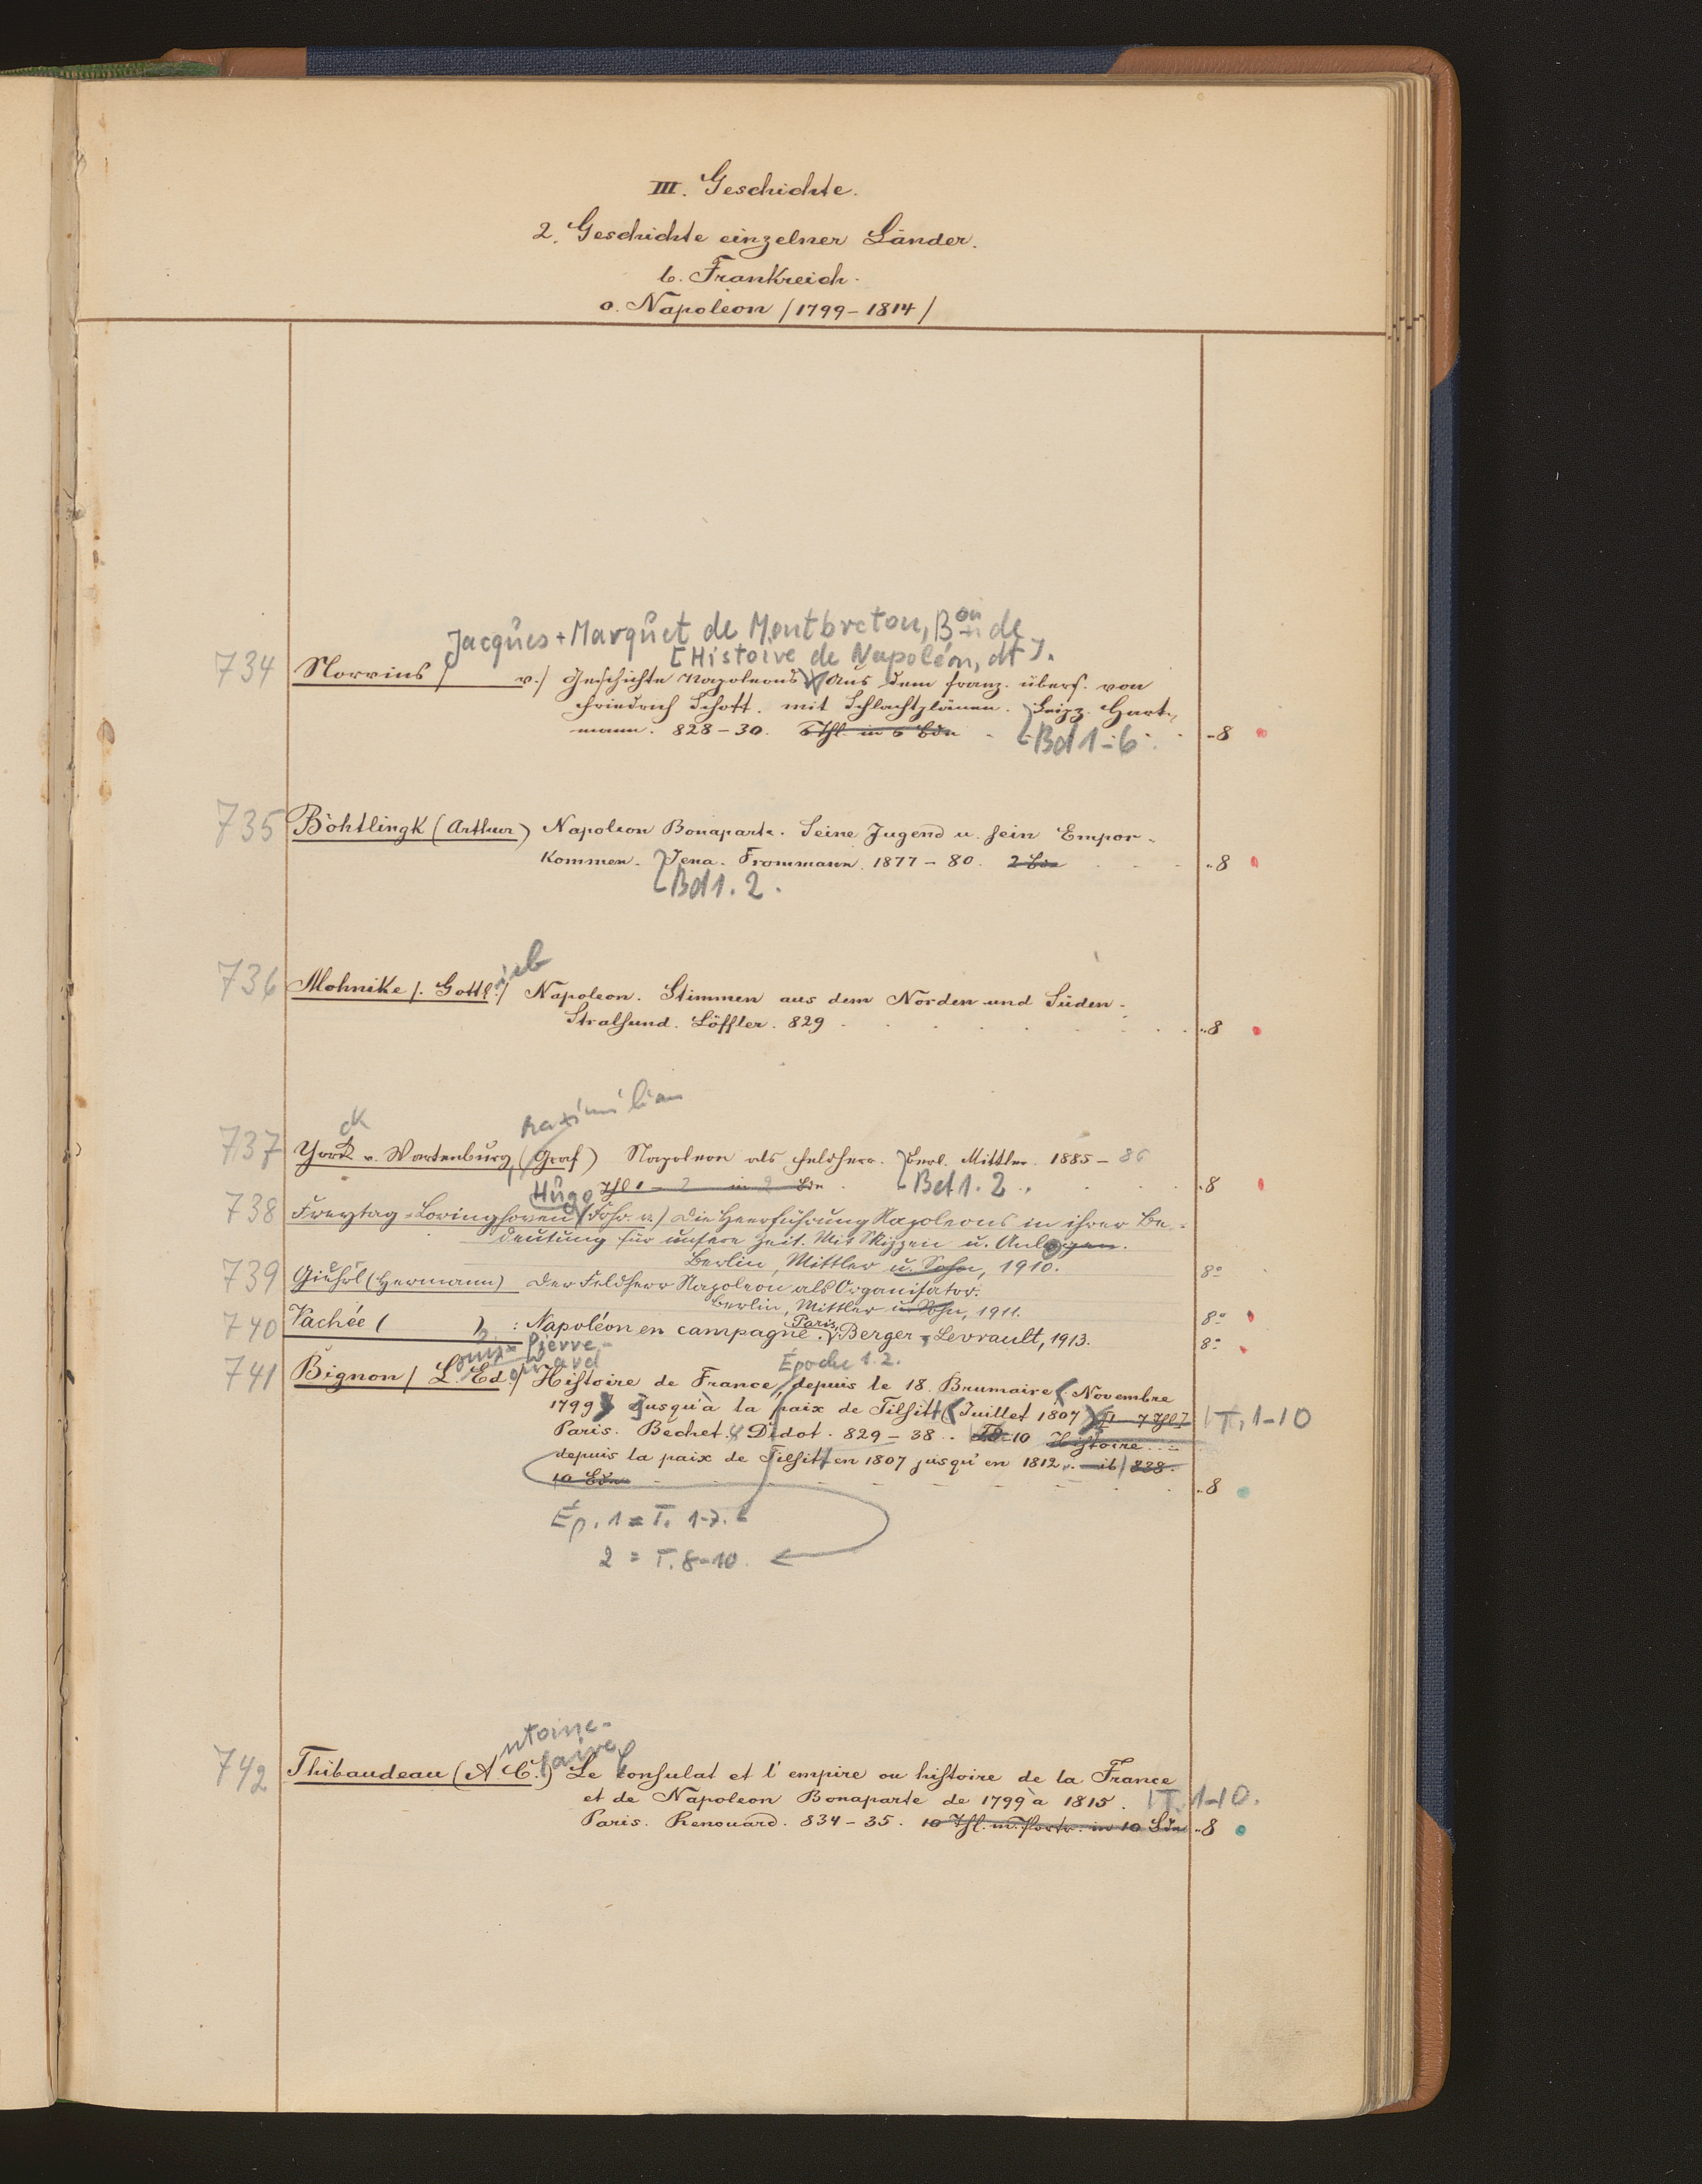 III. Geschichte.
2. Geschichte einzelner Länder.
b. Frankreich.
o. Napoleon /1799-1814/
Jacques Marquet de Montbreton, Bon de
[Histoire de Napoléon, dt].
734 Norvins / v./ Geschichte Napoleons Aus dem franz. übers. von
Friedrich Schott. mit Schlachtplänen. Leipz. Hart-
mann. 828-30. 6 Thl. in 6 Bdn [Bd 1-6. 8
735 Böhtlingk (Arthur) Napoleon Bonaparte. Seine Jugend u. sein Empor-
kommen. Jena. Frommann. 1877-80. 2 Bde 8
[Bd 1. 2.
ieb
736 Mohnike /. Gottl./ Napoleon. Stimmen aus dem Norden und Süden.
Stralsund. Löffler. 829 8
Maximilian
ck
737 York v. Wartenburg, (Graf) Napoleon als Feldherr. Berl. Mittler. 1885-86
Thl 1-2 in 2 Bdn [Bd 1. 2. 8
Hugo
738 Freytag-Loringhoven (Frhr. v.) Die Heerführung Napoleons in ihrer Be-
deutung für unsere Zeit. Mit Skizzen u. Anlagen.
Berlin, Mittler u. Sohn, 1910. 8°
739 Giehrl (Hermann) Der Feldherr Napoleon als Organisator.
Berlin, Mittler u. Sohn, 1911. 8°
740 Vachée ( ) : Napoléon en campagne. Paris, Berger-Levrault, 1913. 8°
ouis-Pierre-
ouard Époche 1.2.
741 Bignon / L. Ed./ Histoire de France, depuis le 18. Brumaire (Novembre
1799) jusqu'à la paix de Tilsitt (Juillet 1807) [1-7 Thl] T. 1-10
Paris. Bechet. Didot. 829-38. 10 Histoire...
depuis la paix de Tilsitt en 1807 jusqu'en 1812. ib/838.
10 Bde 8
Ép. 1 = T. 1-7.
2 = T. 8-10.
ntoine-
laire
742 Thibaudeau (A. C.) Le consulat et l'empire ou histoire de la France
et de Napoleon Bonaparte de 1799 à 1815. T. 1-10.
Paris. Renouard. 834-35. 10 Thl. m. Portr. in 10 Bdn 8